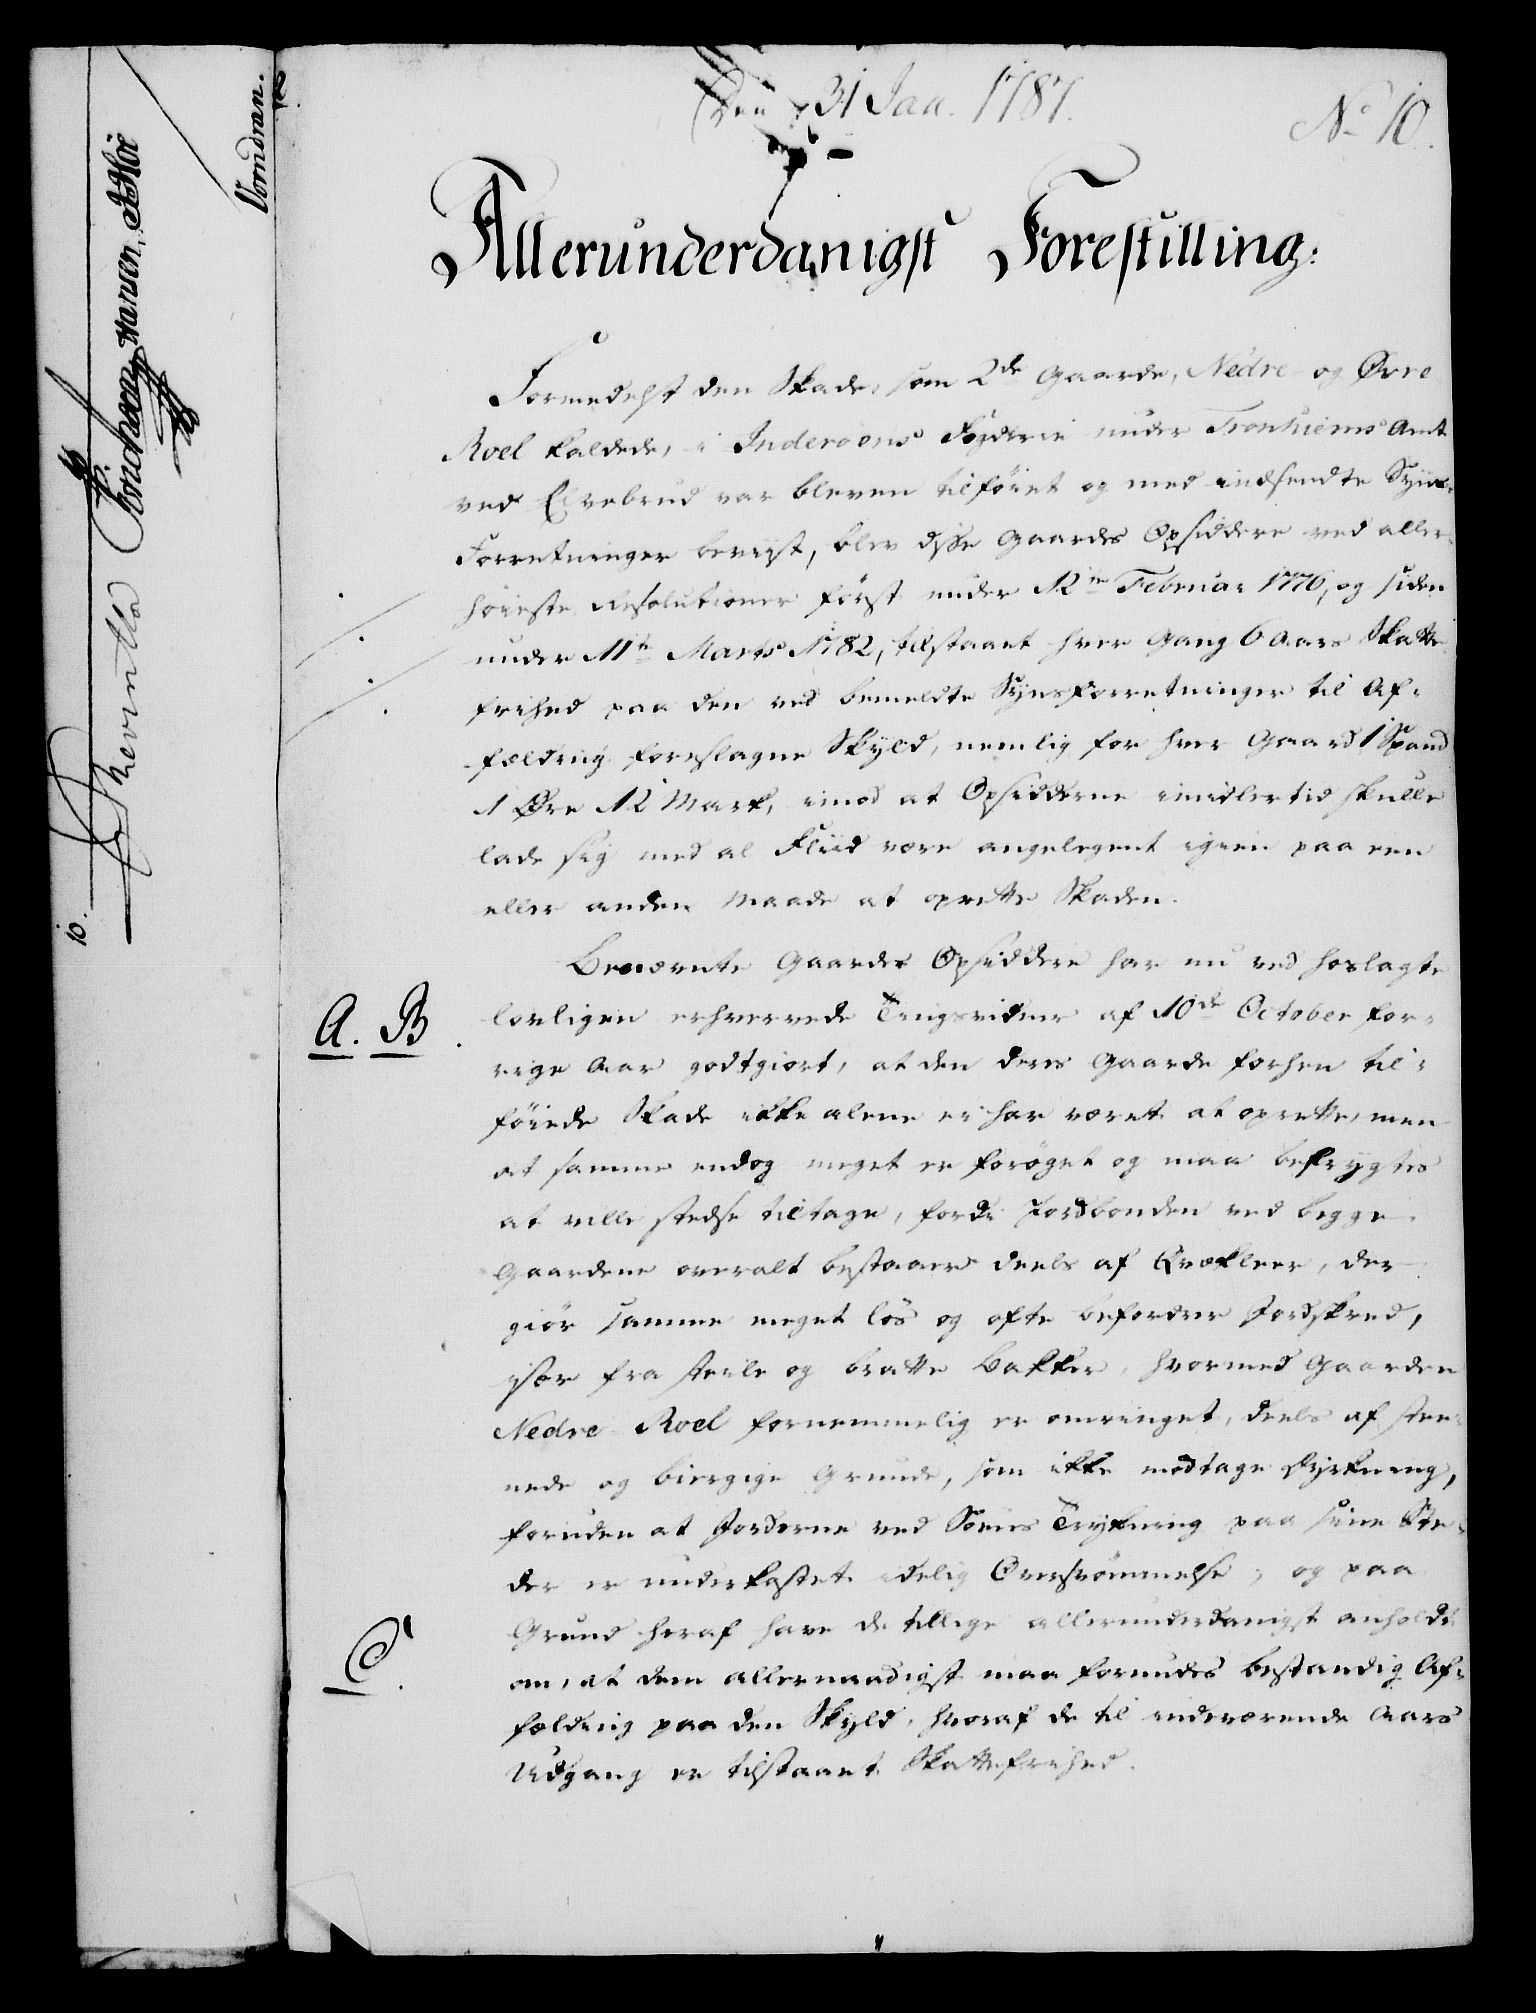 Den 31 Jan. 1787.
No 10.
Allerunderdanigst Forestilling:
Formedelst den Skade, som 2de Gaarde, Nedre og Øvre
Roel kaldede, i Inderøens Fogderie under Tronhiems Amt
ved Elvebrud var bleven tilföiet og med indsendte Syns-
Forretninger beviist, blev disse Gaardes Opsiddere ved aller-
höieste Resolutioner först under 12te Februar 1776, og siden
under 11te Marts 1782, tilstaaet hver Gang 6 Aars Skatte-
frihed paa den ved bemeldte Synsforretninger til Af-
fældning foreslagne Skyld, nemlig for hver Gaard 1 Spand
1 Øre 12 Mark, imod at Opsidderne imidlertid skulle
lade sig med al Fliid være angelegent igien paa een
eller anden Maade at oprette Skaden.
Benævnte Gaardes Opsiddere har nu ved hoslagte
A. B.
lovligen erhvervede Tingsvidner af 10de October for-
rige Aar godtgiort, at den deres Gaarde forhen til-
föiede Skade ikke alene ei har været at oprette, men
at samme endog meget er forøget og maa befrygtes
at ville stedse tiltage, fordi Jordbonden ved begge
Gaardene overalt bestaaer deels af Qvækleer, der
giör samme meget lös og ofte befordrer Jordskred,
især fra steile og bratte Bakker, hvormed Gaarden
Nedre Roel fornemmelig er omringet, deels af stee-
nede og biergige Grunde, som ikke modtage Dyrkning,
foruden at Jorderne ved Söens Trykning paa sine Ste-
der er underkastet idelig Oversvömmelse; og paa
Grund heraf have de tillige allerunderdanigst anholdt
C.
om, at dem allernaadigst maa forundes bestandig Af-
fældning paa den Skyld, hvoraf de til indeværende Aars
Udgang er tilstaaet Skattefrihed.
Vorndran.
10.